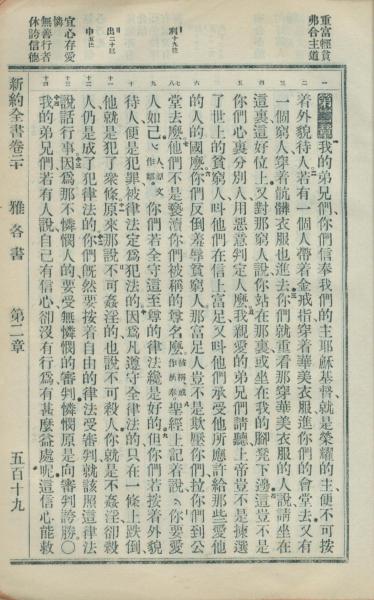 重富輕貧
弗合主道
利十九章
出二十章
申五章
宜心存愛
憐
無善行者
休誇信他
第二章
一 我的弟兄們你們信奉我們的主耶穌基督就是榮耀的主便不可按
二 着外貌待人若有一個人帶着金戒指穿着華美衣服進你們的會堂去又有
三 一個窮人穿着骯髒衣服也進去你們就重看那穿華美衣服的人說請坐在
四 這裏這好位上又對那窮人說你站在那裏或坐在我的腳凳下邊這豈不是
五 你們心裏分別人用惡意判定人麼我親愛的弟兄們請聽上帝豈不是揀選
了世上的貧窮人叫他們在信上富足又叫他們承受他所應許給那些愛他
六 的人的國麼你們反倒羞辱貧窮人那富足人豈不是欺壓你們拉你們到公
七 八 堂去麼他們不是褻瀆你們被稱的尊名麼聖經上記着說你要愛
九 人如己你們若全守這至尊的律法纔是好的但你們若按着外貌
十 待人便是犯罪被律法定為犯法的因為凡遵守全律法的只在一條上跌倒
十一 他就是犯了衆條原來那說不可姦淫的也說不可殺人你就是不姦淫卻殺
十二 人仍是成了犯律法的你們既然要按着自由的律法受審判就該照這律法
十三 說話行事因為那不憐憫人的要受無憐憫的審判憐憫原是向審判誇勝○
十四 我的弟兄們若有人說自己有信心卻沒有行為有甚麼益處呢這信心能救
新約全書卷二十 雅各書 第二章 五百十九